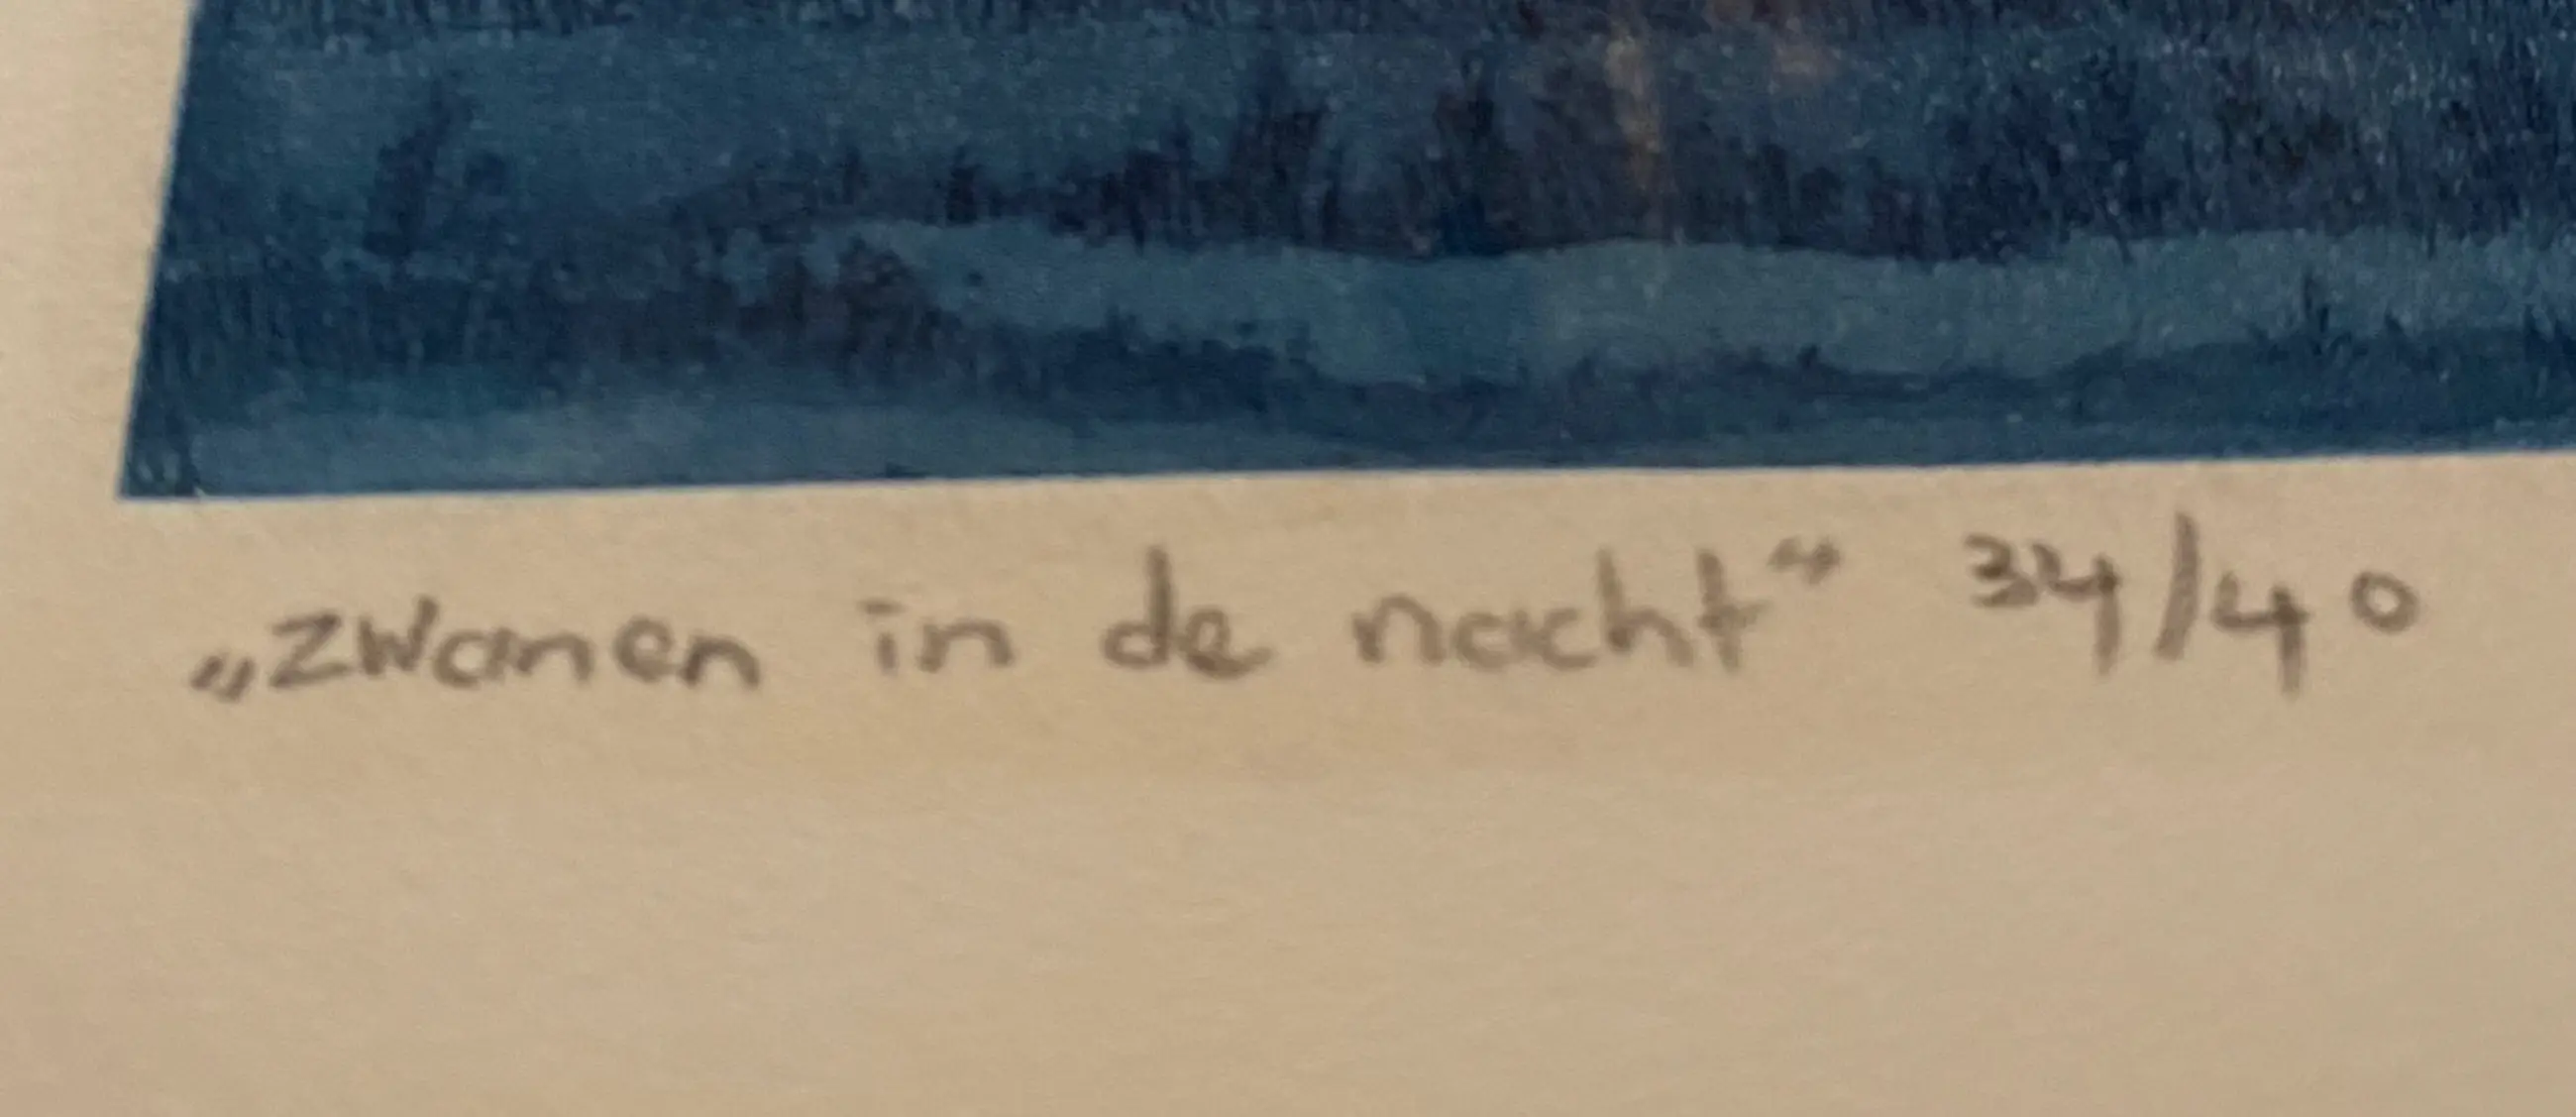 „Zwanen in de nacht“ 34/40